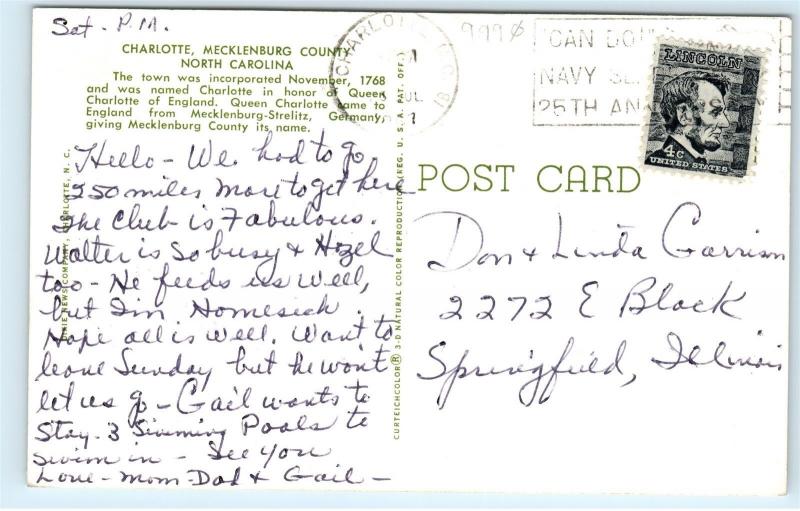 Sat. P.M.
CHARLOTTE, MECKLENBURG COUNTY
NORTH CAROLINA
The town was incorporated November, 1768
and was named Charlotte in honor of Queen
Charlotte of England. Queen Charlotte came to
England from Mecklenburg-Strelitz, Germany,
giving Mecklenburg County its name.
Hello - We had to go
250 miles more to get here
The Club is Fabulous.
Walter is So busy & Hazel
too - He feeds us well,
but I'm Homesick.
Hope all is well. Want to
leave Sunday but he won't
let us go - Gail wants to
Stay. 3 Swimming Pools to
swim in - See you
Love - Mom - Dad & Gail -
DIXIE NEWS COMPANY, CHARLOTTE, N. C.
CURTEICHCOLOR ® 3-D NATURAL COLOR REPRODUCTION (REG. U. S. A. PAT. OFF.)
CHARLOTTE
JUL
9990
CAN DO
NAVY SE
25TH AN
LINCOLN
4c
UNITED STATES
POST CARD
Don & Linda Garrison
2272 E Black
Springfield, Illinois